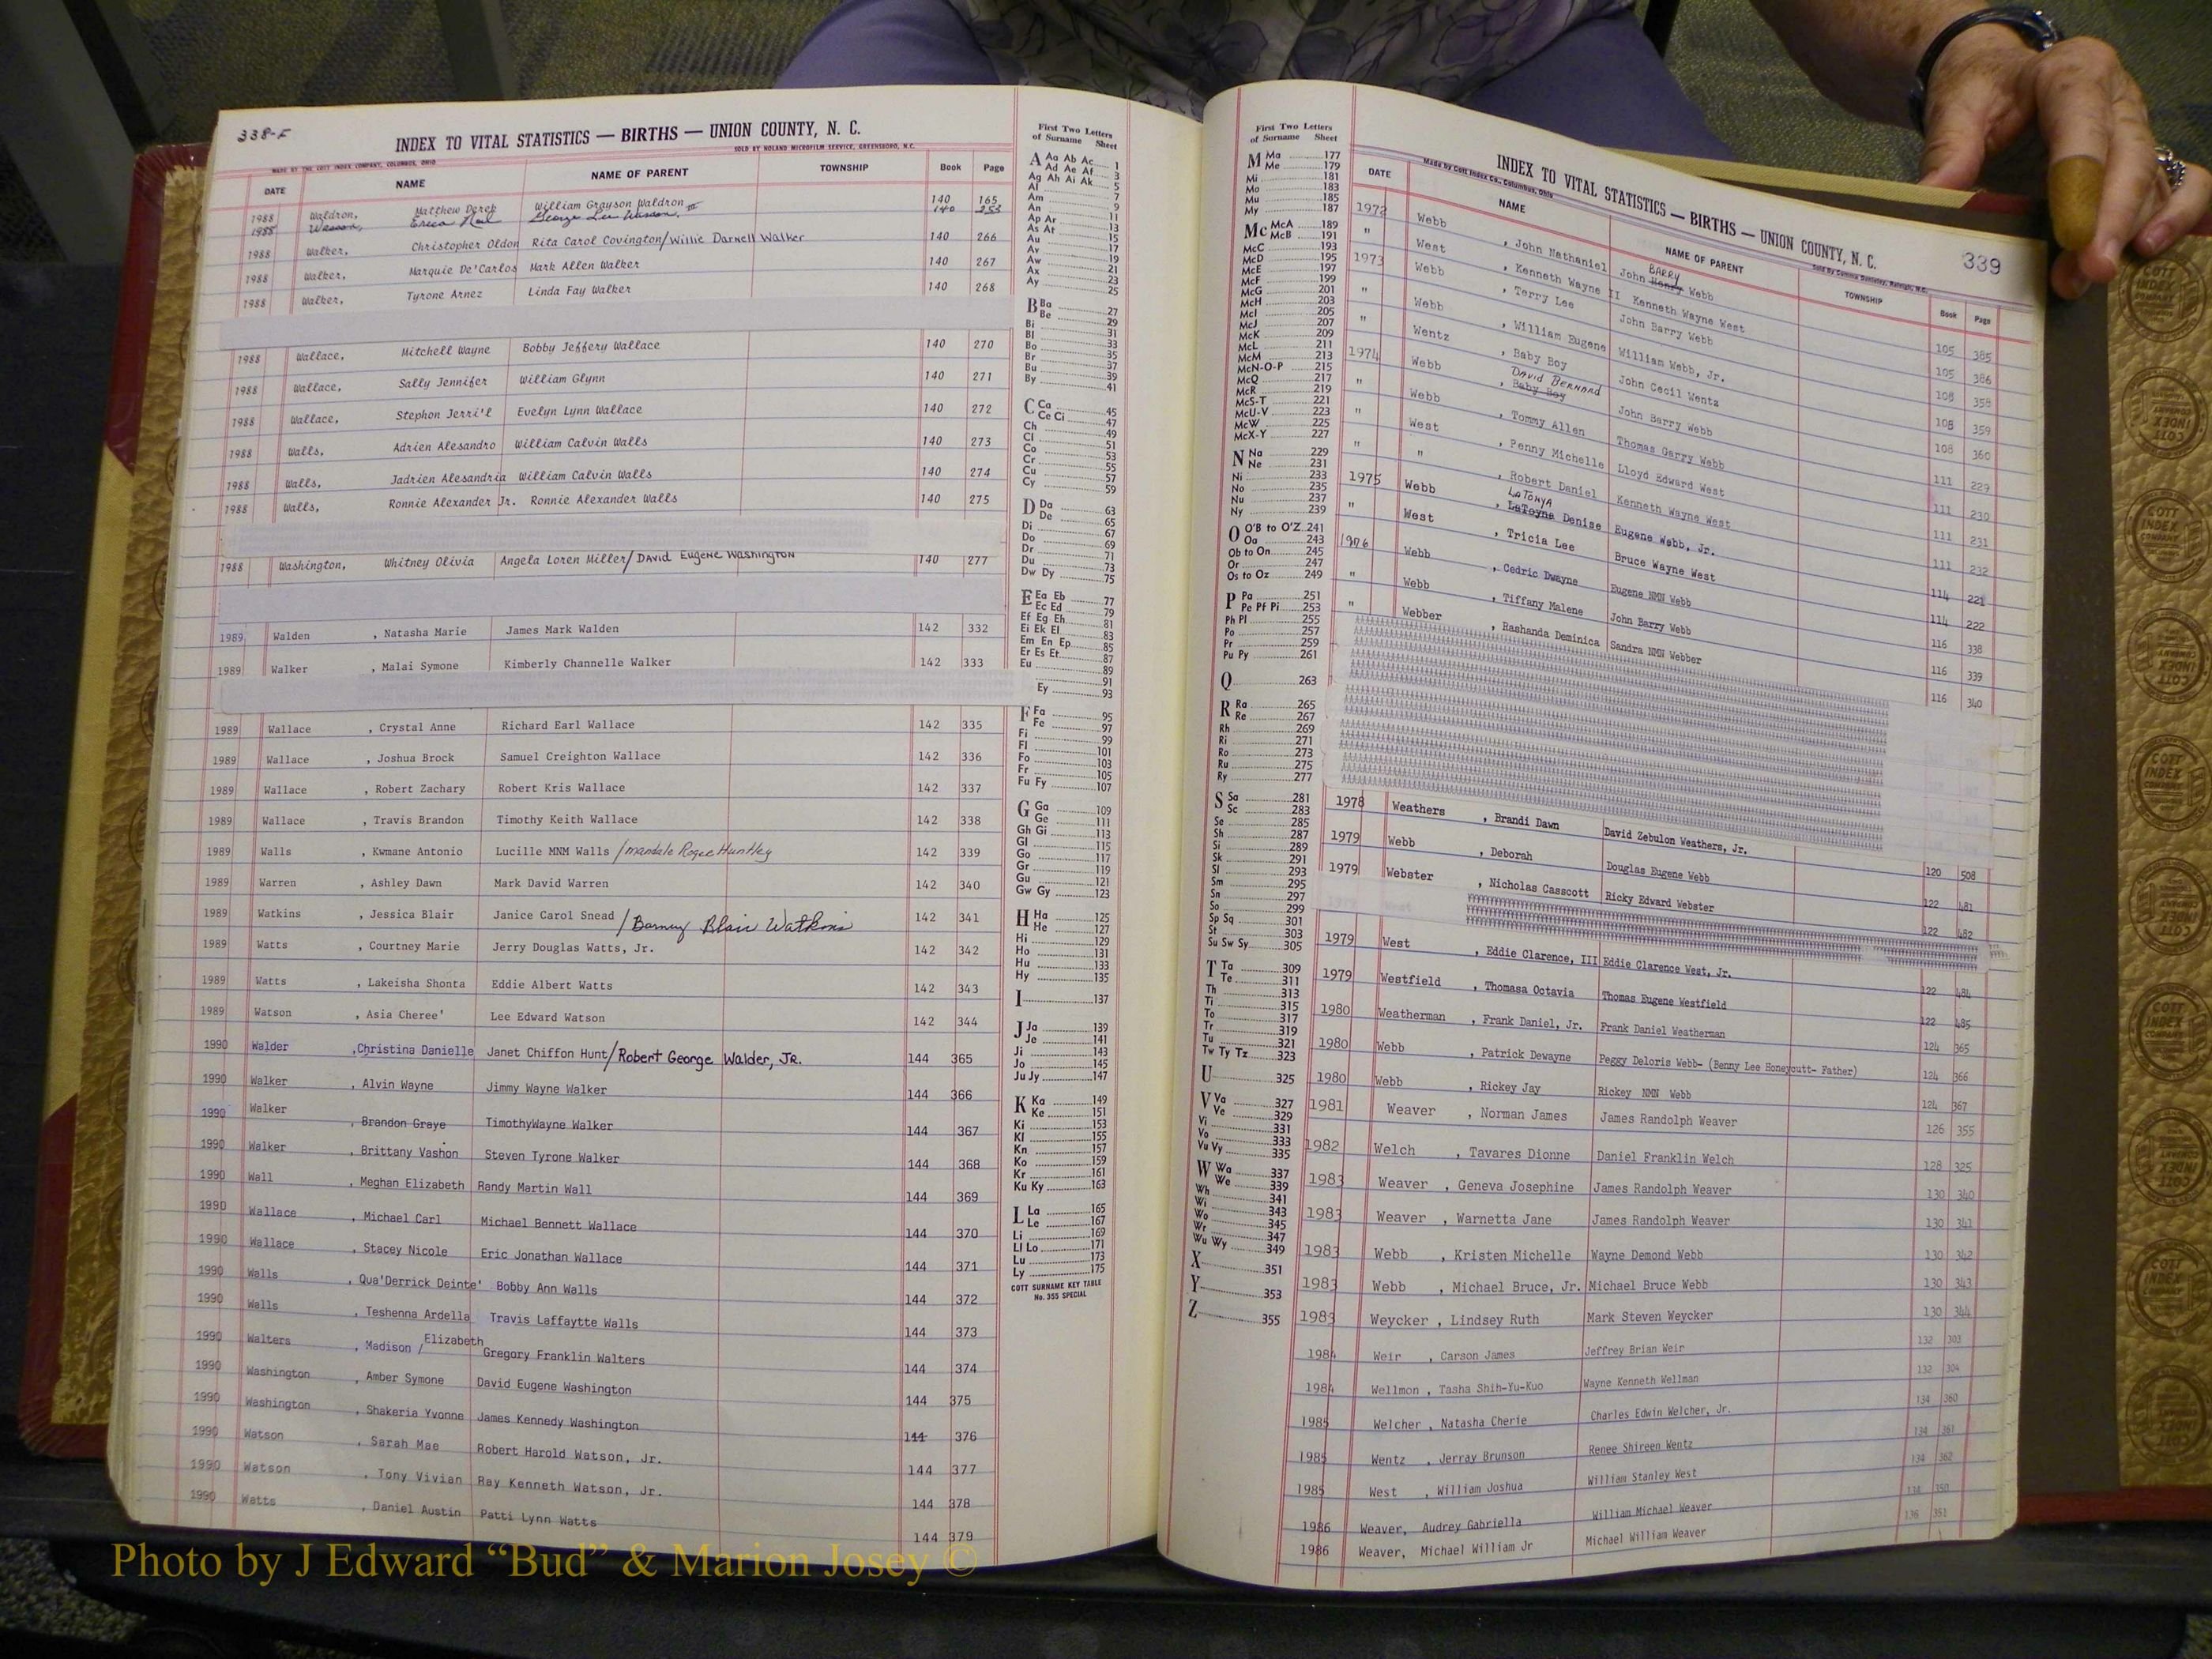 338-F
INDEX TO VITAL STATISTICS — BIRTHS — UNION COUNTY, N. C.
MADE BY THE COTT INDEX COMPANY, COLUMBUS, OHIO
SOLD BY NOLAND MICROFILM SERVICE, GREENSBORO, N.C.
DATE NAME NAME OF PARENT TOWNSHIP Book Page
1988 Waldron, Matthew Derek William Grayson Waldron III 140 165
1988 140 253
1988 Walker, Christopher Oldon Rita Carol Covington/Willie Darnell Walker 140 266
1988 Walker, Marquie De'Carlos Mark Allen Walker 140 267
1988 Walker, Tyrone Arnez Linda Fay Walker 140 268
1988 Wallace, Mitchell Wayne Bobby Jeffery Wallace 140 270
1988 Wallace, Sally Jennifer William Glynn 140 271
1988 Wallace, Stephon Jerri'l Evelyn Lynn Wallace 140 272
1988 Walls, Adrien Alesandro William Calvin Walls 140 273
1988 Walls, Jadrien Alesandria William Calvin Walls 140 274
1988 Walls, Ronnie Alexander Jr. Ronnie Alexander Walls 140 275
1988 Washington, Whitney Olivia Angela Loren Miller/David Eugene Washington 140 277
1989 Walden , Natasha Marie James Mark Walden 142 332
1989 Walker , Malai Symone Kimberly Channelle Walker 142 333
1989 Wallace , Crystal Anne Richard Earl Wallace 142 335
1989 Wallace , Joshua Brock Samuel Creighton Wallace 142 336
1989 Wallace , Robert Zachary Robert Kris Wallace 142 337
1989 Wallace , Travis Brandon Timothy Keith Wallace 142 338
1989 Walls , Kwmane Antonio Lucille MNM Walls / 142 339
1989 Warren , Ashley Dawn Mark David Warren 142 340
1989 Watkins , Jessica Blair Janice Carol Snead / Barney Blair Watkins 142 341
1989 Watts , Courtney Marie Jerry Douglas Watts, Jr. 142 342
1989 Watts , Lakeisha Shonta Eddie Albert Watts 142 343
1989 Watson , Asia Cheree' Lee Edward Watson 142 344
1990 Walder ,Christina Danielle Janet Chiffon Hunt/Robert George Walder, Jr. 144 365
1990 Walker , Alvin Wayne Jimmy Wayne Walker 144 366
1990 Walker , Brandon Graye TimothyWayne Walker 144 367
1990 Walker , Brittany Vashon Steven Tyrone Walker 144 368
1990 Wall , Meghan Elizabeth Randy Martin Wall 144 369
1990 Wallace , Michael Carl Michael Bennett Wallace 144 370
1990 Wallace , Stacey Nicole Eric Jonathan Wallace 144 371
1990 Walls , Qua'Derrick Deinte' Bobby Ann Walls 144 372
1990 Walls , Teshenna Ardella Travis Laffaytte Walls 144 373
1990 Walters , Madison / Elizabeth Gregory Franklin Walters 144 374
1990 Washington , Amber Symone David Eugene Washington 144 375
1990 Washington , Shakeria Yvonne James Kennedy Washington 144 376
1990 Watson , Sarah Mae Robert Harold Watson, Jr. 144 377
1990 Watson , Tony Vivian Ray Kenneth Watson, Jr. 144 378
1990 Watts , Daniel Austin Patti Lynn Watts 144 379
First Two Letters
of Surname Sheet
A Aa Ab Ac 1
Ad Ae Af 3
Ag Ah Ai Ak 5
Al 7
Am 9
An 11
Ap Ar 13
As At 15
Au 17
Av 19
Aw 21
Ax 23
Ay 25
B Ba 27
Be 29
Bi 31
Bl 33
Bo 35
Br 37
Bu 39
By 41
C Ca 45
Ce Ci 47
Ch 49
Cl 51
Co 53
Cr 55
Cu 57
Cy 59
D Da 63
De 65
Di 67
Do 69
Dr 71
Du 73
Dw Dy 75
E Ea Eb 77
Ec Ed 79
Ef Eg Eh 81
Ei Ek El 83
Em En Ep 85
Er Es Et 87
Eu 89
91
Ey 93
F Fa 95
Fe 97
Fi 99
Fl 101
Fo 103
Fr 105
Fu Fy 107
G Ga 109
Ge 111
Gh Gi 113
Gl 115
Go 117
Gr 119
Gu 121
Gw Gy 123
H Ha 125
He 127
Hi 129
Ho 131
Hu 133
Hy 135
I 137
J Ja 139
Je 141
Ji 143
Jo 145
Ju Jy 147
K Ka 149
Ke 151
Ki 153
Kl 155
Kn 157
Ko 159
Kr 161
Ku Ky 163
L La 165
Le 167
Li 169
Ll Lo 171
Lu 173
Ly 175
COTT SURNAME KEY TABLE
No. 355 SPECIAL
First Two Letters
of Surname Sheet
M Ma 177
Me 179
Mi 181
Mo 183
Mu 185
My 187
Mc McA 189
McB 191
McC 193
McD 195
McE 197
McF 199
McG 201
McH 203
McI 205
McJ 207
McK 209
McL 211
McM 213
McN-O-P 215
McQ 217
McR 219
McS-T 221
McU-V 223
McW 225
McX-Y 227
N Na 229
Ne 231
Ni 233
No 235
Nu 237
Ny 239
O O'B to O'Z 241
Oa 243
Ob to On 245
Or 247
Os to Oz 249
P Pa 251
Pe Pf Pi 253
Ph Pl 255
Po 257
Pr 259
Pu Py 261
Q 263
R Ra 265
Re 267
Rh 269
Ri 271
Ro 273
Ru 275
Ry 277
S Sa 281
Sc 283
Se 285
Sh 287
Si 289
Sk 291
Sl 293
Sm 295
Sn 297
So 299
Sp Sq 301
St 303
Su Sw Sy 305
T Ta 309
Te 311
Th 313
Ti 315
To 317
Tr 319
Tu 321
Tw Ty Tz 323
U 325
V Va 327
Ve 329
Vi 331
Vo 333
Vu Vy 335
W Wa 337
We 339
Wh 341
Wi 343
Wo 345
Wr 347
Wu Wy 349
X 351
Y 353
Z 355
INDEX TO VITAL STATISTICS — BIRTHS — UNION COUNTY, N. C.
339
Made by Cott Index Co., Columbus, Ohio
DATE NAME NAME OF PARENT TOWNSHIP Book Page
1972 Webb , John Nathaniel John Barry Webb 105 385
" West , Kenneth Wayne II Kenneth Wayne West 105 386
1973 Webb , Terry Lee John Barry Webb 108 358
" Webb , William Eugene William Webb, Jr. 108 359
" Wentz , Baby Boy John Cecil Wentz 108 360
1974 Webb , David Bernard Baby Boy John Barry Webb 111 229
" Webb , Tommy Allen Thomas Garry Webb 111 230
" West , Penny Michelle Lloyd Edward West 111 231
" " , Robert Daniel Kenneth Wayne West 111 232
1975 Webb , LaTonya LaToyna Denise Eugene Webb, Jr. 114 221
" West , Tricia Lee Bruce Wayne West 114 222
1976 Webb , Cedric Dwayne Eugene NMN Webb 116 338
" Webb , Tiffany Malene John Barry Webb 116 339
" Webber , Rashanda Deminica Sandra NMN Webber 116 340
1978 Weathers , Brandi Dawn David Zebulon Weathers, Jr. 120 508
1979 Webb , Deborah Douglas Eugene Webb 122 481
1979 Webster , Nicholas Casscott Ricky Edward Webster 122 482
1979 West , Eddie Clarence, III Eddie Clarence West, Jr. 122 484
1979 Westfield , Thomasa Octavia Thomas Eugene Westfield 122 485
1980 Weatherman , Frank Daniel, Jr. Frank Daniel Weatherman 124 365
1980 Webb , Patrick Dewayne Peggy Deloris Webb- (Benny Lee Honeycutt- Father) 124 366
1980 Webb , Rickey Jay Rickey NMN Webb 124 367
1981 Weaver , Norman James James Randolph Weaver 126 355
1982 Welch , Tavares Dionne Daniel Franklin Welch 128 325
1983 Weaver , Geneva Josephine James Randolph Weaver 130 340
1983 Weaver , Warnetta Jane James Randolph Weaver 130 341
1983 Webb , Kristen Michelle Wayne Demond Webb 130 342
1983 Webb , Michael Bruce, Jr. Michael Bruce Webb 130 343
1983 Weycker , Lindsey Ruth Mark Steven Weycker 130 344
1984 Weir , Carson James Jeffrey Brian Weir 132 303
1984 Wellmon , Tasha Shih-Yu-Kuo Wayne Kenneth Wellman 132 304
1985 Welcher , Natasha Cherie Charles Edwin Welcher, Jr. 134 360
1985 Wentz , Jerray Brunson Renee Shireen Wentz 134 361
1985 West , William Joshua William Stanley West 134 362
1986 Weaver, Audrey Gabriella William Michael Weaver 350
1986 Weaver, Michael William Jr Michael William Weaver 136 351
Photo by J Edward “Bud” & Marion Josey ©